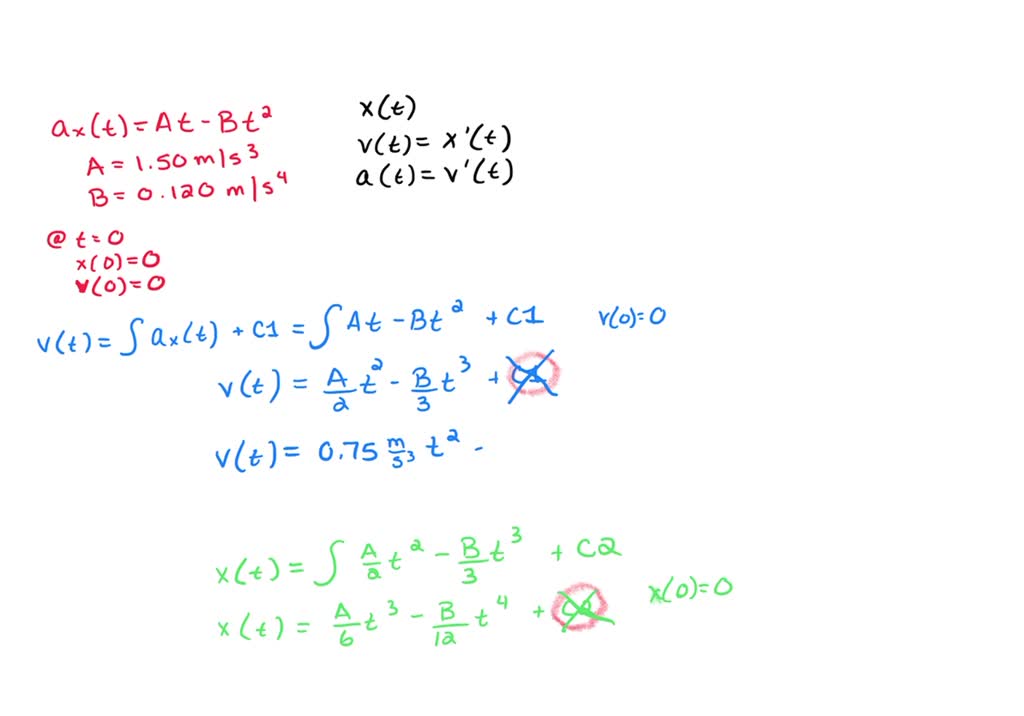 aₓ(t) = At - Bt²
A = 1.50 m/s³
B = 0.120 m/s⁴
x(t)
v(t) = x'(t)
a(t) = v'(t)
@ t = 0
x(0) = 0
v(0) = 0
v(t) = ∫ aₓ(t) + C1 = ∫ At - Bt² + C1 v(0) = 0
v(t) = A/2 t² - B/3 t³ + C1
v(t) = 0.75 m/s³ t² -
x(t) = ∫ A/2 t² - B/3 t³ + C2
x(t) = A/6 t³ - B/12 t⁴ + C2 x(0) = 0